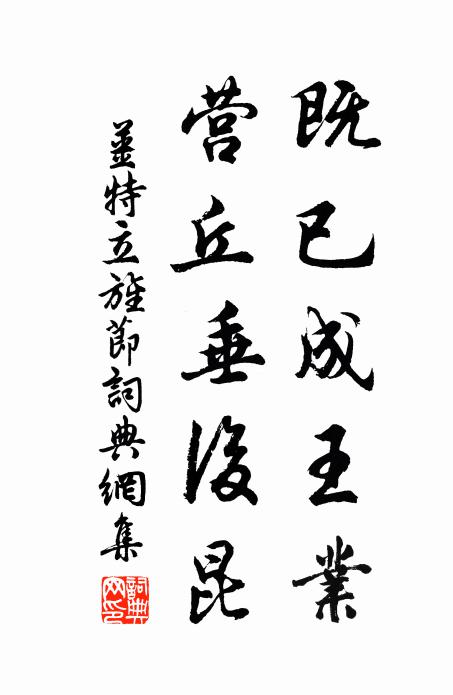 既已成王業
營丘垂後昆
姜特立旌節詞典網集
詞典網印